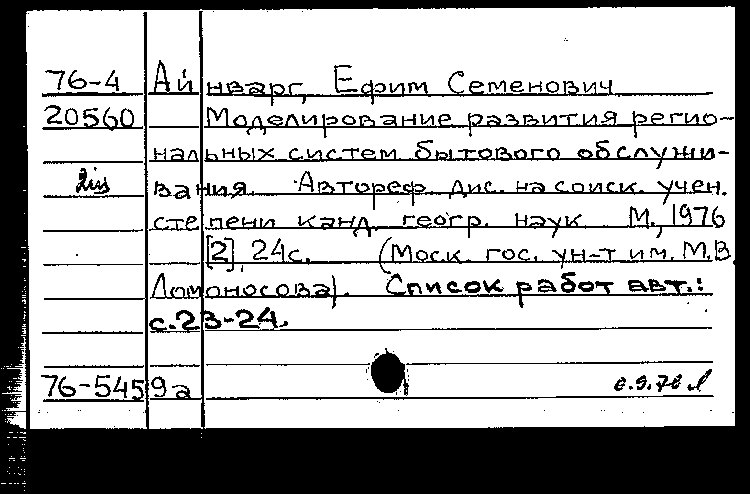 76-4 Айнварг, Ефим Семенович
20560 Моделирование развития регио-
нальных систем бытового обслужи-
вания. Автореф. дис. на соиск. учен.
степени канд. геогр. наук. М., 1976
[2], 24с. (Моск. гос. ун-т им. М.В.
Ломоносова). Список работ авт.:
с.23-24.
76-5459а